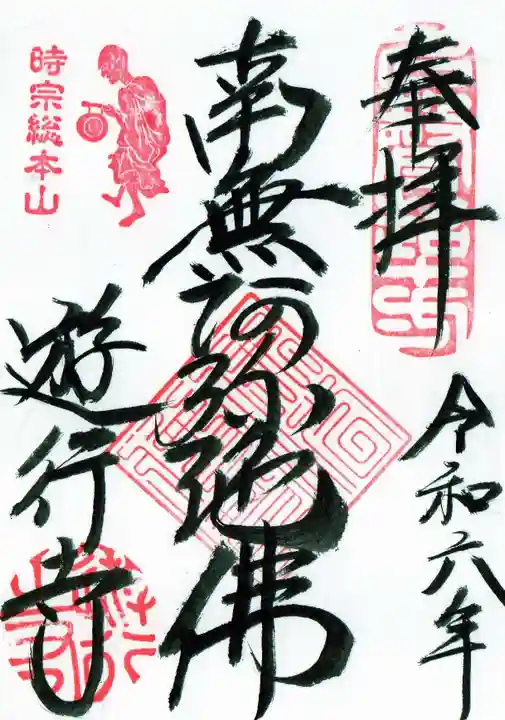 奉拝
令和六年
南無阿弥陀佛
時宗総本山
遊行寺